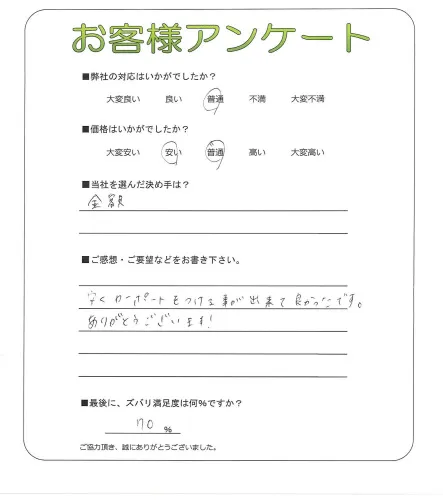 お客様アンケート
■弊社の対応はいかがでしたか？
大変良い 良い 普通 不満 大変不満
■価格はいかがでしたか？
大変安い 安い 普通 高い 大変高い
■当社を選んだ決め手は？
金額
■ご感想・ご要望などをお書き下さい。
安くカーポートをつける事が出来て良かったです。
ありがとうございます!
■最後に、ズバリ満足度は何%ですか？
70 %
ご協力頂き、誠にありがとうございました。